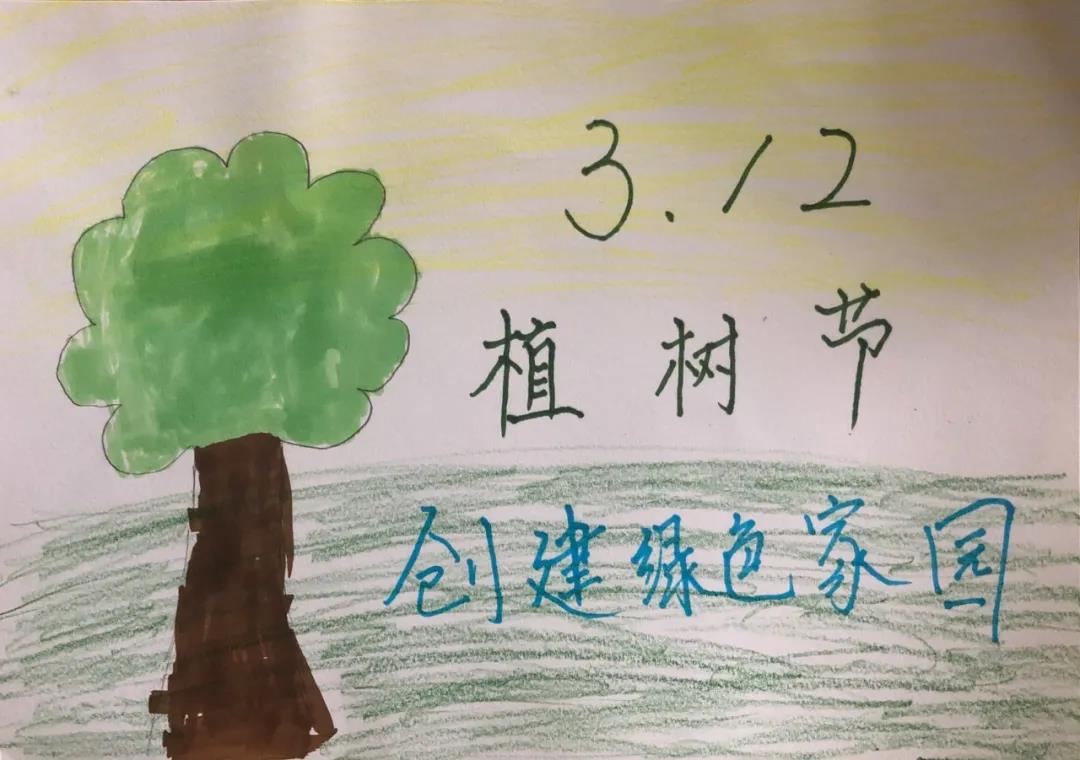 3.12
植树节
创建绿色家园